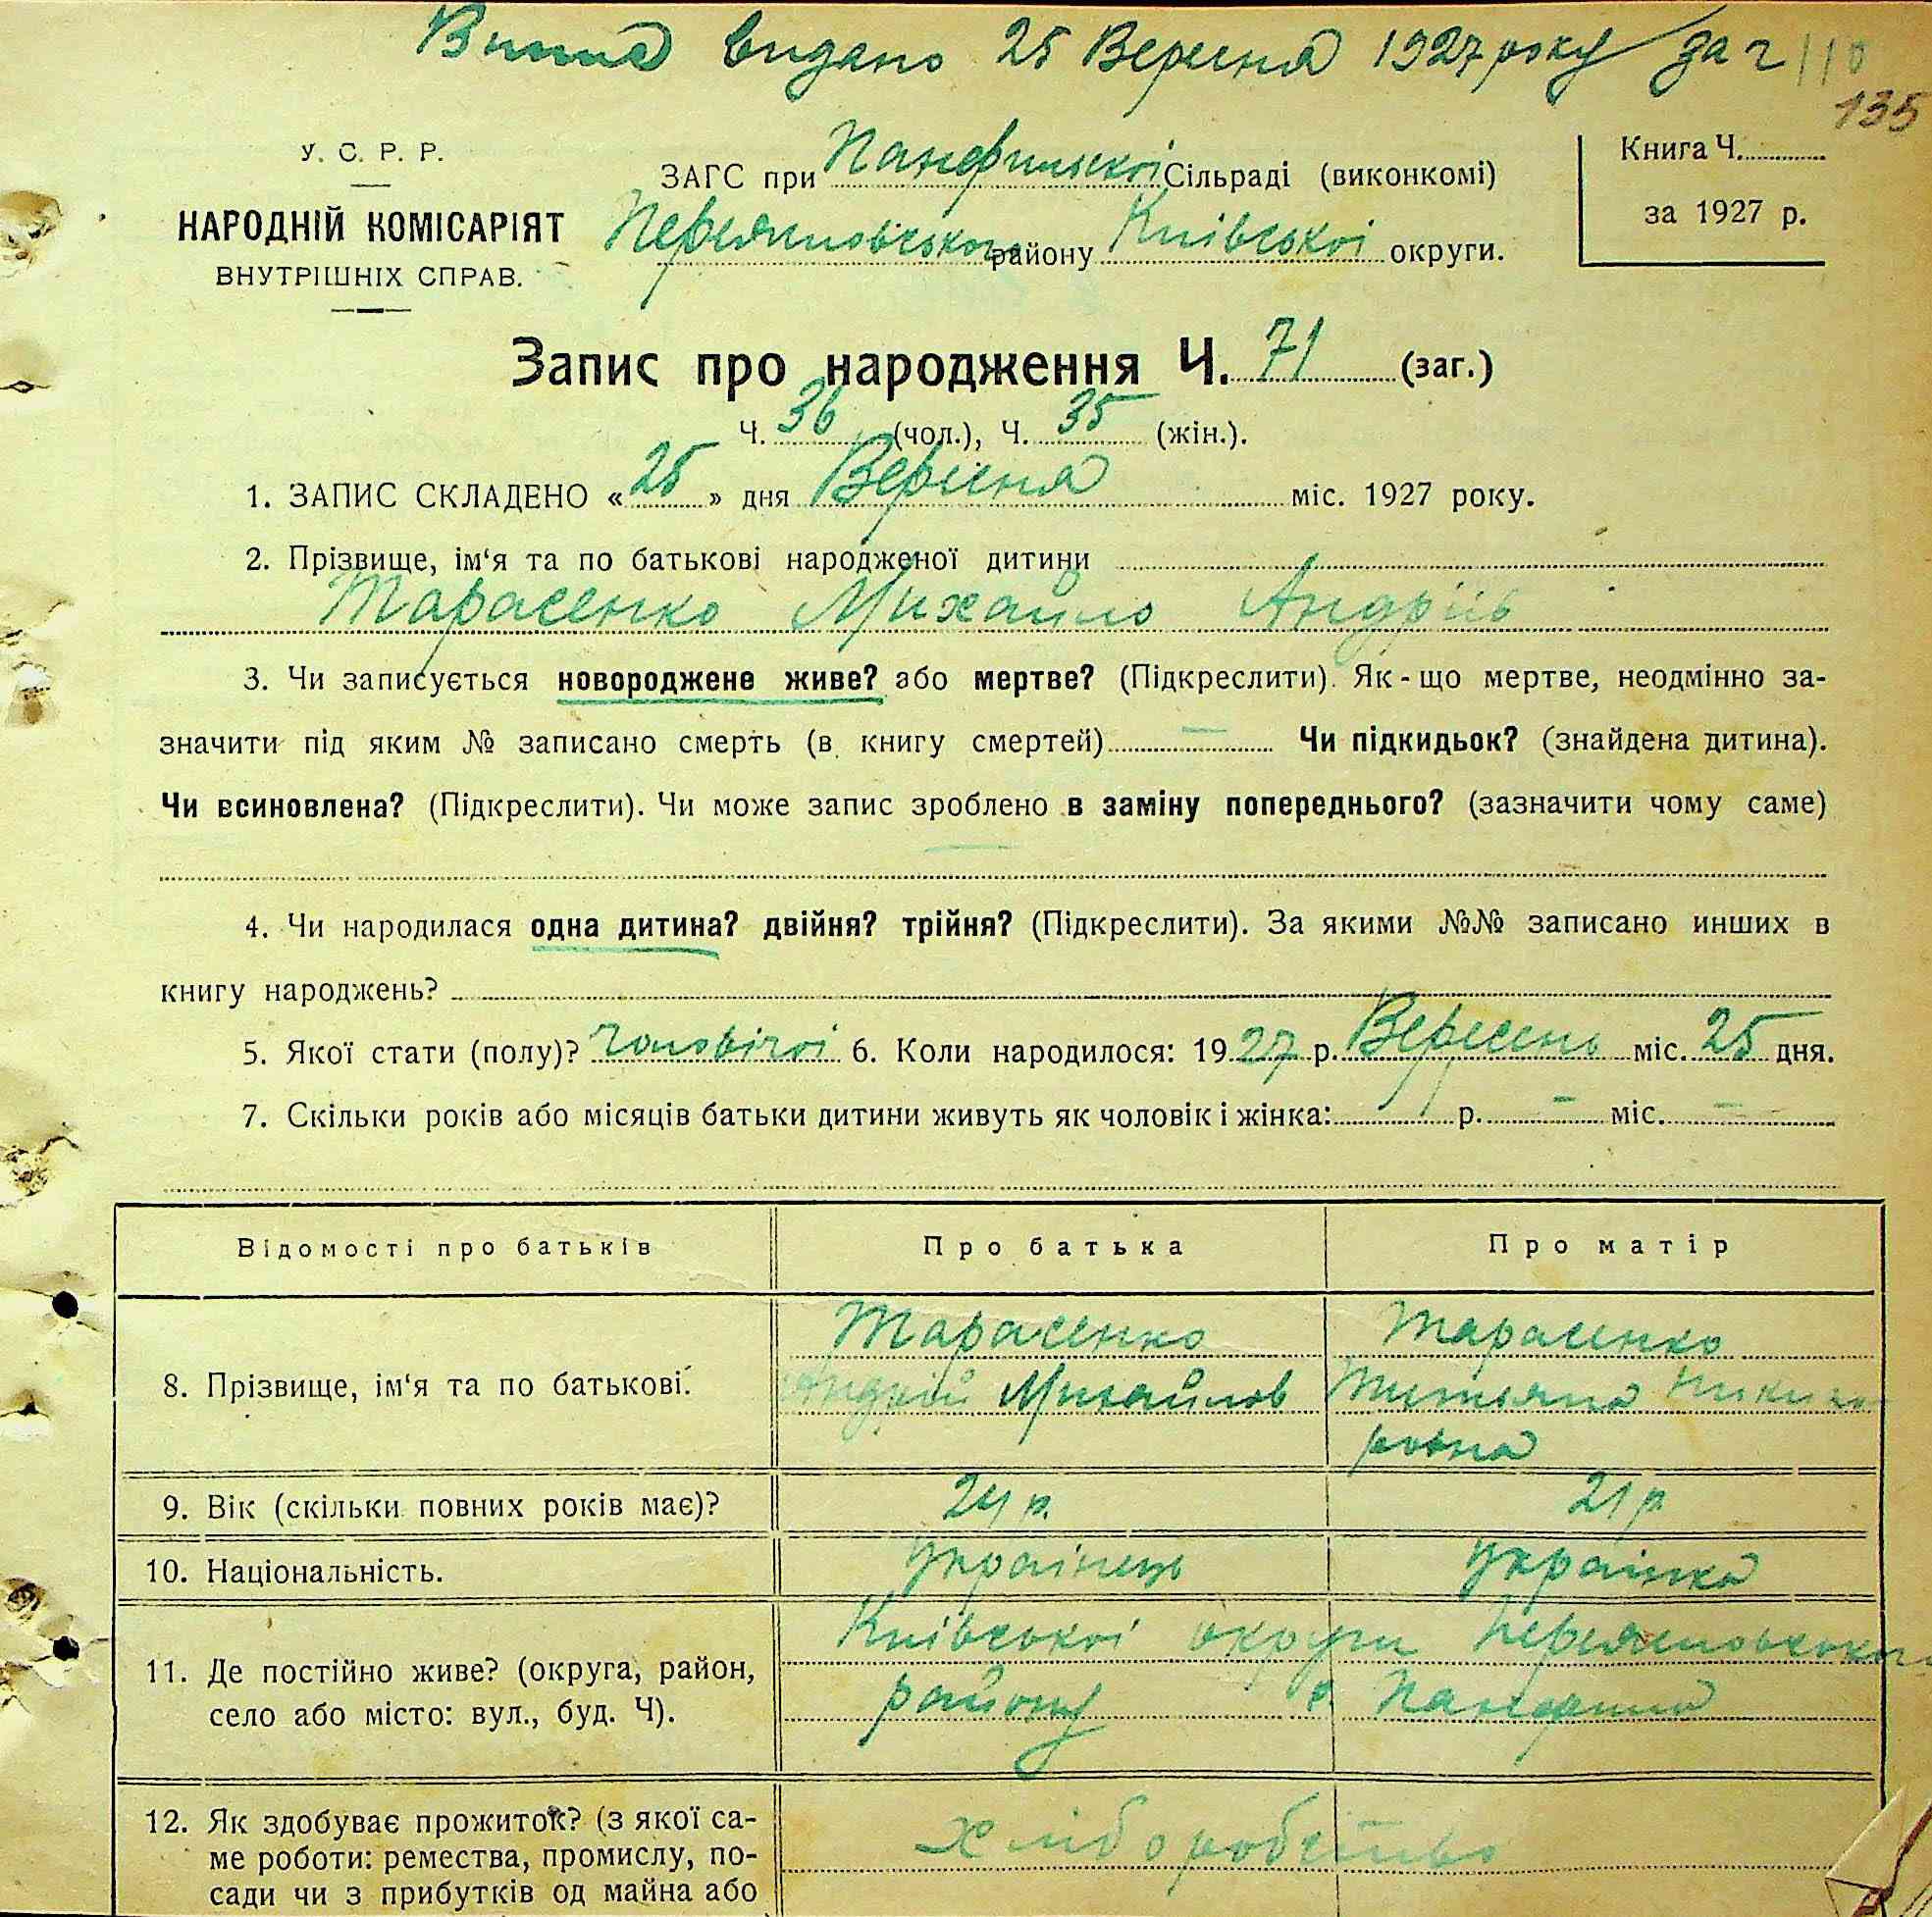 видано 25 Вересня 1927 року за ч 110
135
У. С. Р. Р.
НАРОДНІЙ КОМІСАРІЯТ
ВНУТРІШНІХ СПРАВ.
ЗАГС при Панфильскоі Сільраді (виконкомі)
Переяславського району Київськоі округи.
Книга Ч.
за 1927 р.
Запис про народження Ч. 71 (заг.)
Ч. 36 (чол.), Ч. 35 (жін.).
1. ЗАПИС СКЛАДЕНО «25» дня Вересня міс. 1927 року.
2. Прізвище, ім‘я та по батькові народженої дитини
Тарасенко Михайло Андріів
3. Чи записується новороджене живе? або мертве? (Підкреслити). Як-що мертве, неодмінно за-
значити під яким № записано смерть (в книгу смертей) — Чи підкидьок? (знайдена дитина).
Чи всиновлена? (Підкреслити). Чи може запис зроблено в заміну попереднього? (зазначити чому саме)
—
4. Чи народилася одна дитина? двійня? трійня? (Підкреслити). За якими №№ записано инших в
книгу народжень?
5. Якої стати (полу)? чоловічоі 6. Коли народилося: 1927 р. Вересень міс. 25 дня.
7. Скільки років або місяців батьки дитини живуть як чоловік і жінка: р. — міс. —
Відомості про батьків Про батька Про матір
8. Прізвище, ім‘я та по батькові. Тарасенко Андрій Михайлов Тарасенко
ровна
9. Вік (скільки повних років має)? 24 р. 21 р
10. Національність. Украінець Украінка
11. Де постійно живе? (округа, район, Київськоі округи Переяславського
село або місто: вул., буд. Ч). району с. Панфили
12. Як здобуває прожиток? (з якої са-
ме роботи: ремества, промислу, по- хліборобство
сади чи з прибутків од майна або